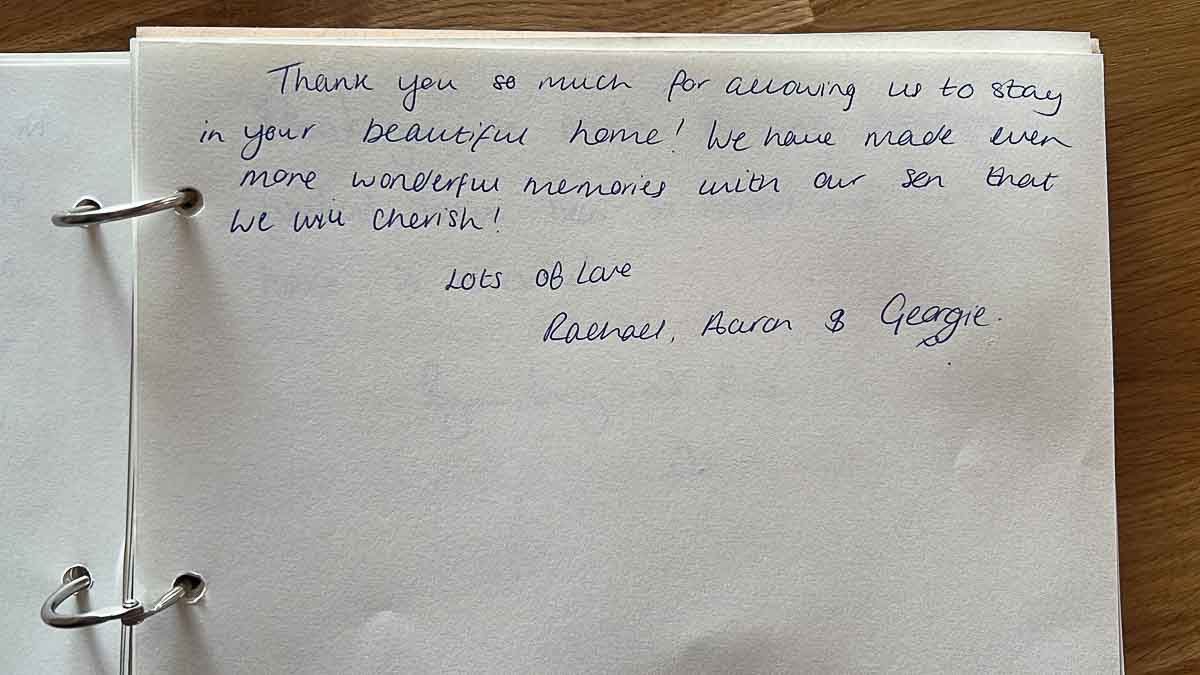 Thank you so much for allowing us to stay
in your beautiful home! We have made even
more wonderful memories with our son that
we will cherish!
Lots of Love
Rachael, Aaron & Georgie.